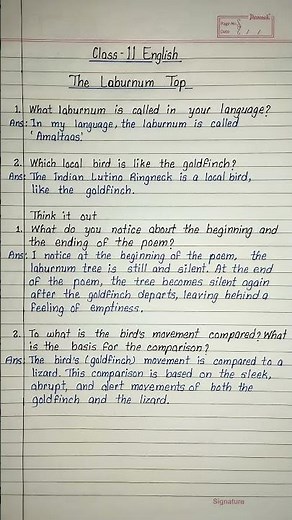 Page No.
Date
Class - 11 English
The Laburnum Top
1. What laburnum is called in your language?
Ans: In my language, the laburnum is called
'Amaltaas.'
2. Which local bird is like the goldfinch?
Ans: The Indian Lutino Ringneck is a local bird,
like the goldfinch.
Think it out
1. What do you notice about the beginning and
the ending of the poem?
Ans: I notice at the beginning of the poem, the
laburnum tree is still and silent. At the end
of the poem, the tree becomes silent again
after the goldfinch departs, leaving behind a
feeling of emptiness.
2. To what is the bird's movement compared? What
is the basis for the comparison?
Ans: The bird's (goldfinch) movement is compared to a
lizard. This comparison is based on the sleek,
abrupt, and alert movements of both the
goldfinch and the lizard.
Signature